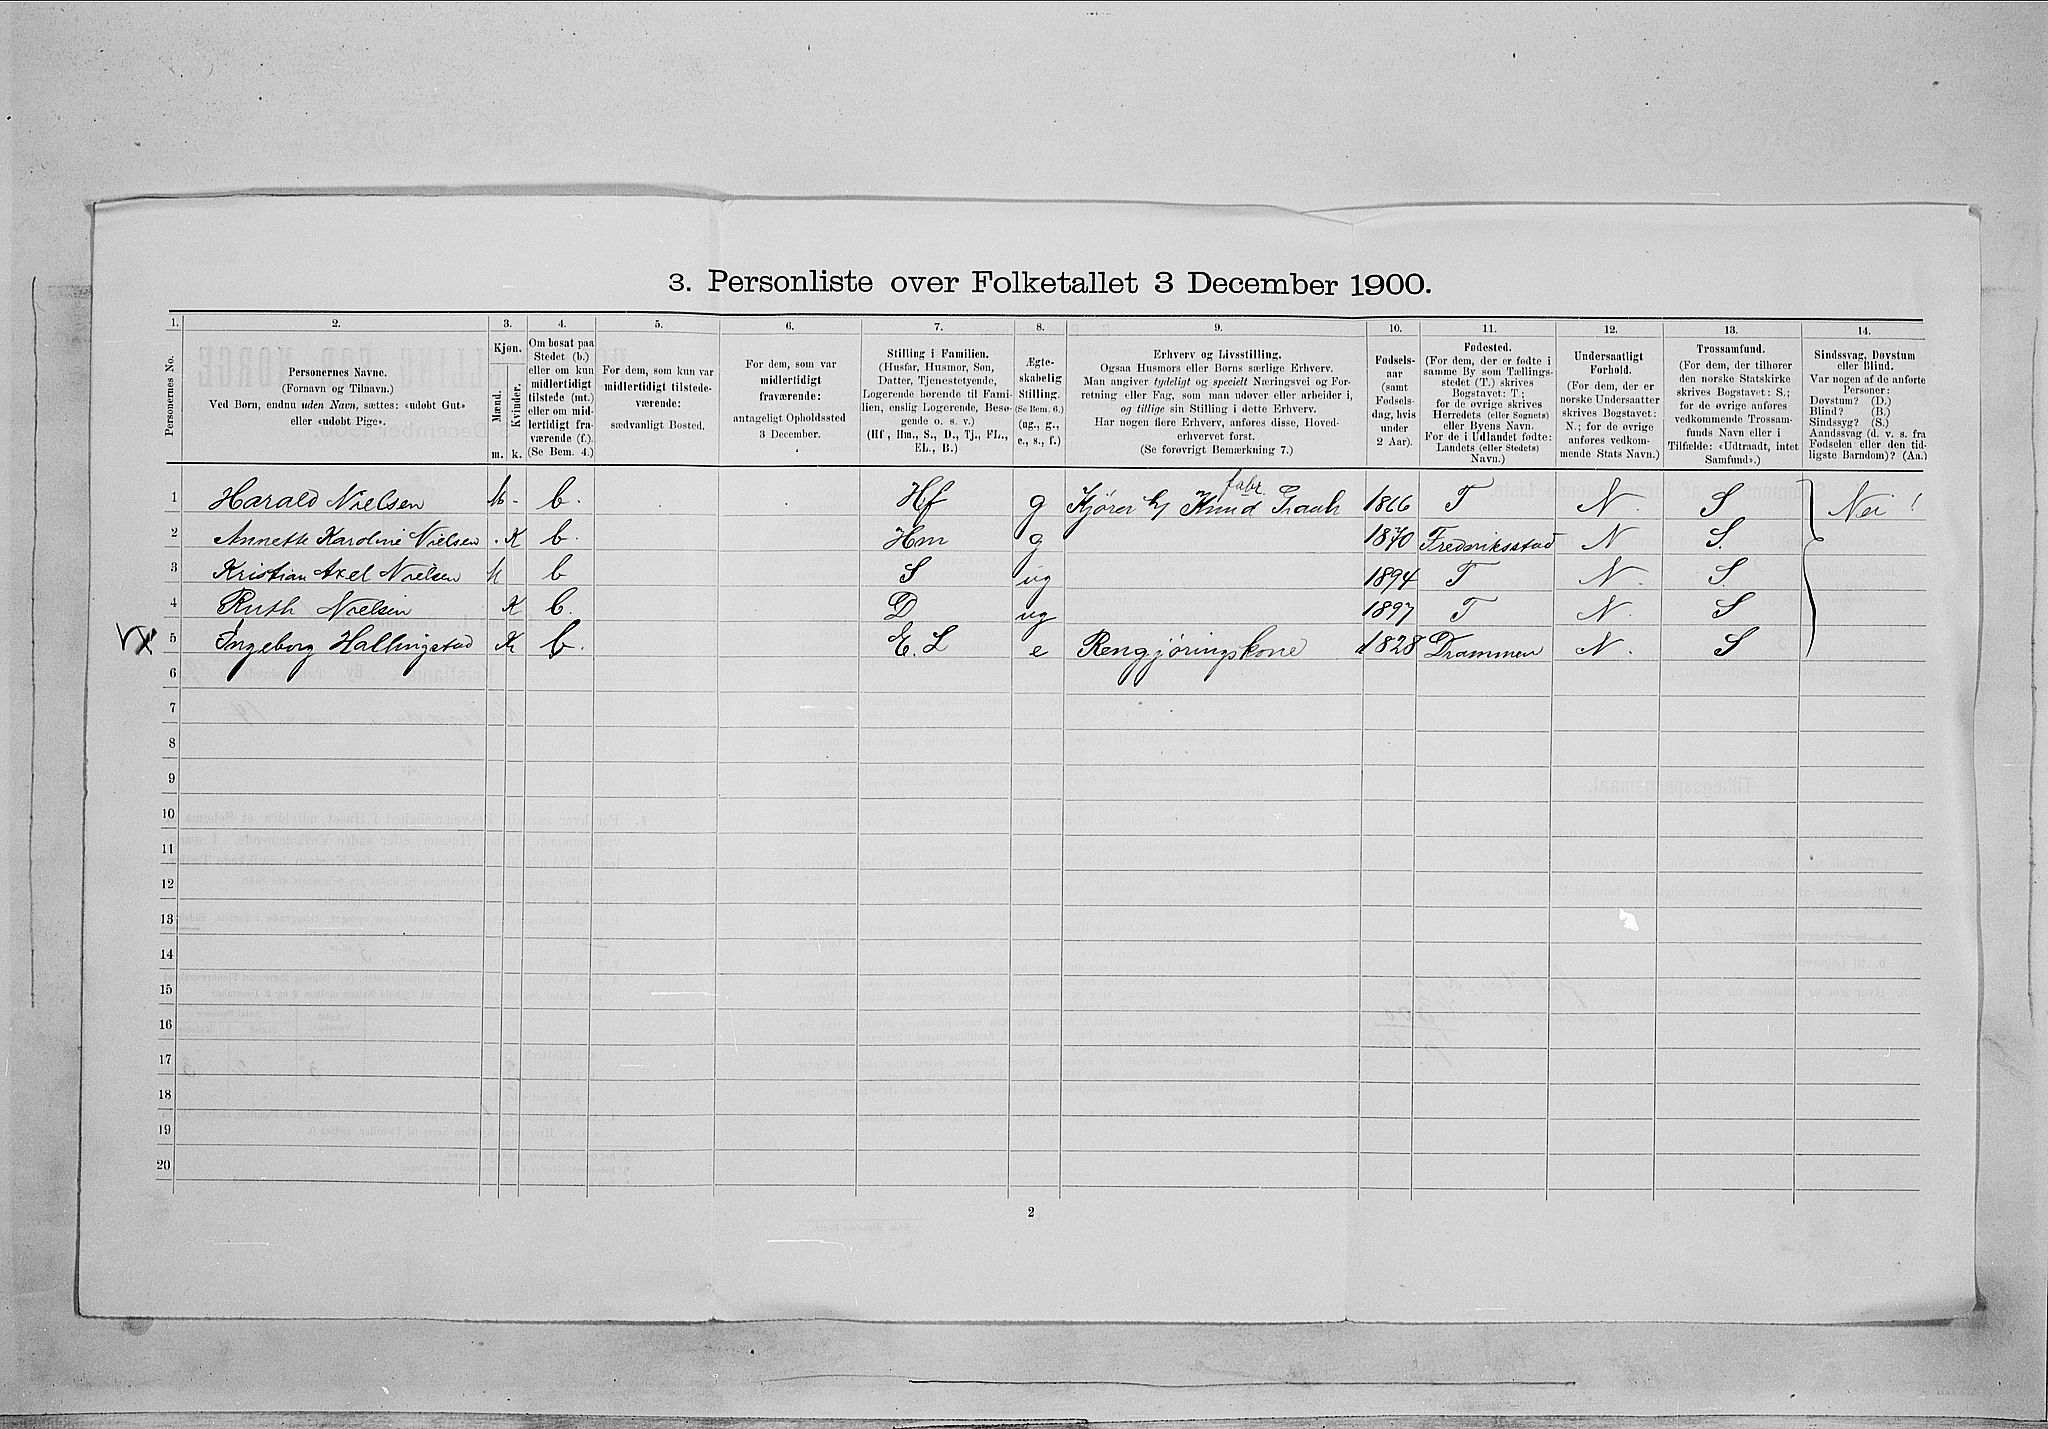 3. Personliste over Folketallet 3 December 1900.
1. 2. 3. 4. 5. 6. 7. 8. 9. 10. 11. 12. 13. 14.
Personernes No.
Personernes Navne.
(Fornavn og Tilnavn.)
Ved Børn, endnu uden Navn, sættes: «udøbt Gut»
eller «udøbt Pige».
Kjøn.
Mænd. Kvinder.
m. k.
Om bosat paa
Stedet (b.)
eller om kun
midlertidigt
tilstede (mt.)
eller om mid-
lertidigt fra-
værende (f.).
(Se Bem. 4.)
For dem, som kun var
midlertidigt tilstede-
værende:
sædvanligt Bosted.
For dem, som var
midlertidigt
fraværende:
antageligt Opholdssted
3 December.
Stilling i Familien.
(Husfar, Husmor, Søn,
Datter, Tjenestetyende,
Logerende hørende til Fami-
lien, enslig Logerende, Besø-
gende o. s. v.)
(Hf., Hm., S., D., Tj., FL.,
EL., B.)
Ægte-
skabelig
Stilling.
(Se Bem. 6.)
(ug., g.,
e., s., f.)
Erhverv og Livsstilling.
Ogsaa Husmors eller Børns særlige Erhverv.
Man angiver tydeligt og specielt Næringsvei og For-
retning eller Fag, som man udøver eller arbeider i,
og tillige sin Stilling i dette Erhverv.
Har nogen flere Erhverv, anføres disse, Hoved-
erhvervet først.
(Se forøvrigt Bemærkning 7.)
Fødsels-
aar
(samt
Fødsels-
dag, hvis
under
2 Aar).
Fødested.
(For dem, der er fødte i
samme By som Tællings-
stedet (T.) skrives
Bogstavet: T.;
for de øvrige skrives
Herredets (eller Sognets)
eller Byens Navn.
For de i Udlandet fødte:
Landets (eller Stedets)
Navn.)
Undersaatligt
Forhold.
(For dem, der er
norske Undersaatter
skrives Bogstavet:
N.; for de øvrige
anføres vedkom-
mende Stats Navn.)
Trossamfund.
(For dem, der tilhører
den norske Statskirke
skrives Bogstavet: S.;
for de øvrige anføres
vedkommende Trossam-
funds Navn eller i
Tilfælde: «Udtraadt, intet
Samfund».)
Sindssvag, Døvstum
eller Blind.
Var nogen af de anførte
Personer:
Døvstum? (D.)
Blind? (B.)
Sindssyg? (S.)
Aandssvag (d. v. s. fra
Fødselen eller den tid-
ligste Barndom)? (Aa.)
1 Harald Nielsen M. b. Hf g Kjører h/ Knud Graah fabr. 1866 T N. S Nei!
2 Annette Karoline Nielsen K b. Hm g 1870 Frederiksstad N S.
3 Kristian Axel Nielsen M b S ug 1894 T N. S.
4 Ruth Nielsen K b. D ug 1897 T N. S
5 Ingeborg Hallingstad K b. E. L e Rengjøringskone 1828 Drammen N. S
6
7
8
9
10
11
12
13
14
15
16
17
18
19
20
2